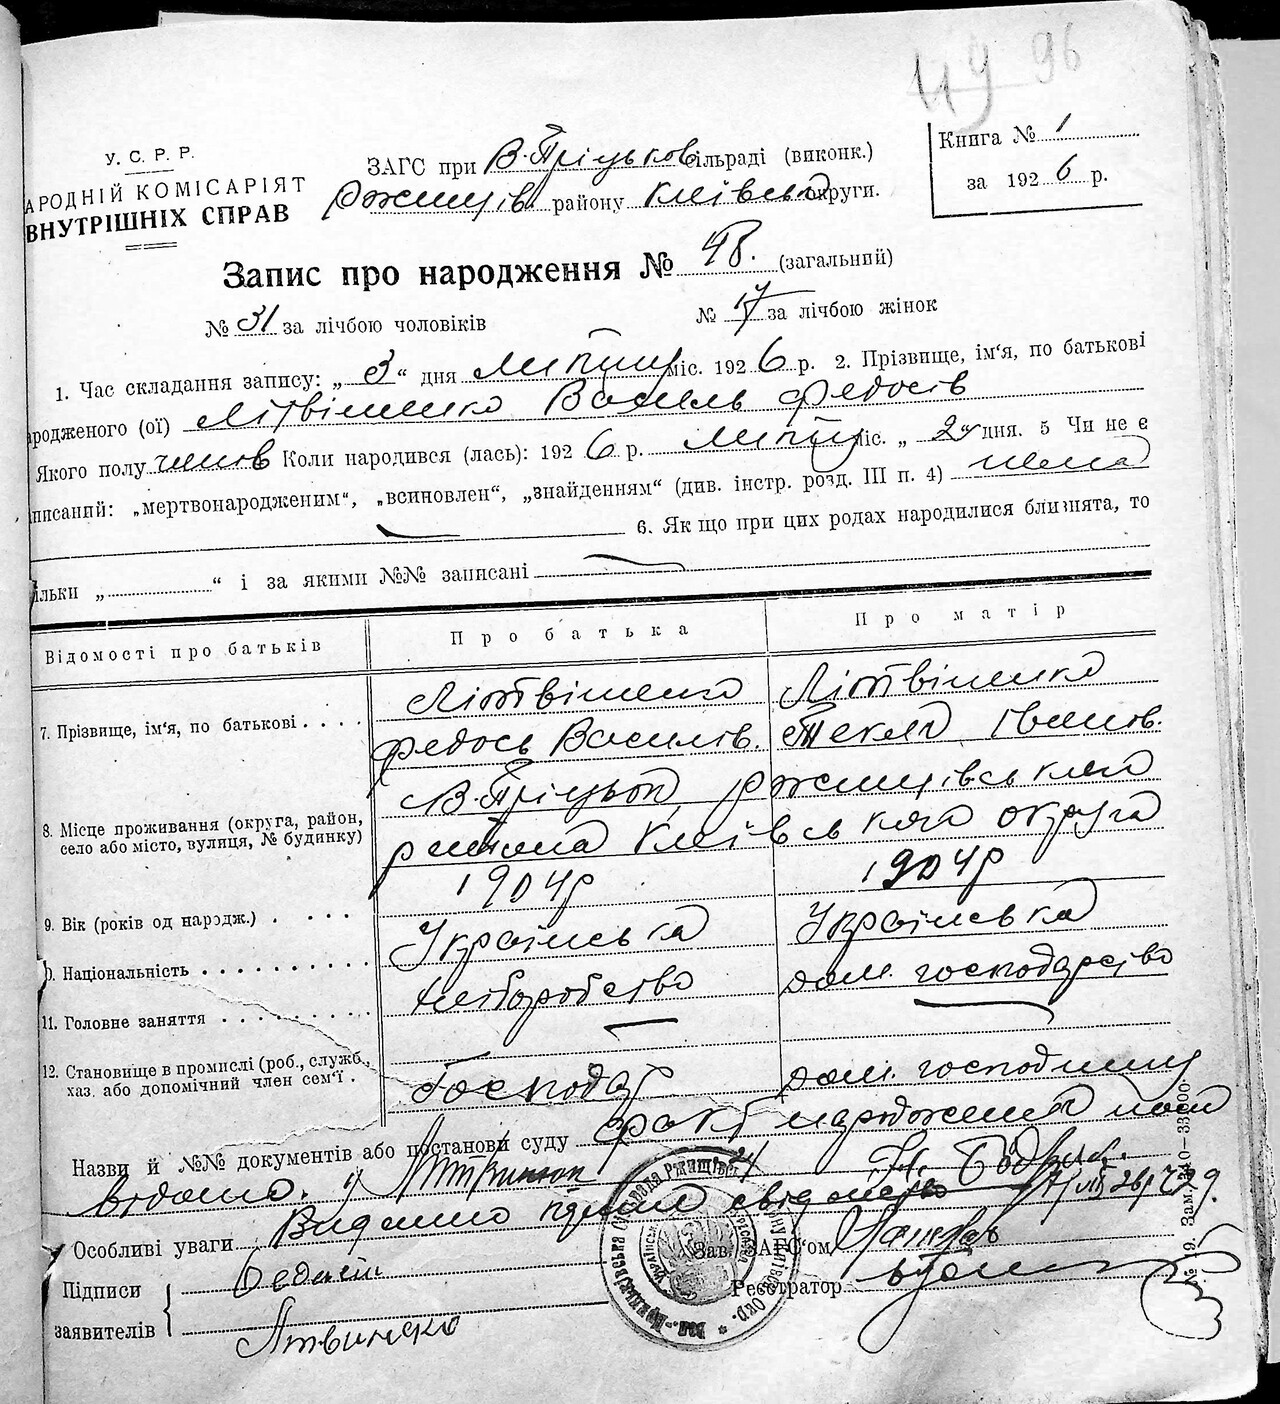 119 96
У. С. Р. Р.
АРОДНІЙ КОМІСАРІЯТ
ВНУТРІШНІХ СПРАВ
ЗАГС при В-Пріцьков сільраді (виконк.)
Ржищів. району Київсько округи.
Книга № 1
за 1926 р.
Запис про народження № 48. (загальний)
№ 31 за лічбою чоловіків
№ 17 за лічбою жінок
1. Час складання запису: „ 3 “ дня Липня міс. 1926 р. 2. Прізвище, ім‘я, по батькові
ародженого (ої) Літвіненко Василь Федосів
Якого полу чолов Коли народився (лась): 1926 р. Липня міс. „ 2 дня. 5 Чи не є
писаний: „мертвонародженим“, „всиновлен“, „знайденням“ (див. інстр. розд. III п. 4) нема
6. Як що при цих родах народилися близнята, то
ільки „ “ і за якими №№ записані
Відомості про батьків Про батька Про матір
7. Прізвище, ім‘я, по батькові . . . . Літвіненко Федось Василів. Літвіненко Текля Іванов.
8. Місце проживання (округа, район, село або місто, вулиця, № будинку) В-Пріцьки Ржищівського района Київського округа
9. Вік (років од народж.) . . . . 1904р 1904р
0. Національність . . . . . . . . . . Українська Українська
11. Головне заняття . . . . . . . . . хліборобство дом. господарство
12. Становище в промислі (роб., служб., хаз. або допомічний член сем‘ї . Господар дом. господиню
Назви й №№ документів або постанови суду факт народження нам
відомо. 1) Литвинюк 2)
Особливі уваги Видано свідоцтво
Підписи
заявителів
Федосій
Литвинєко
Зав. ЗАГС‘ом
Реєстратор
№ 19. Зам.